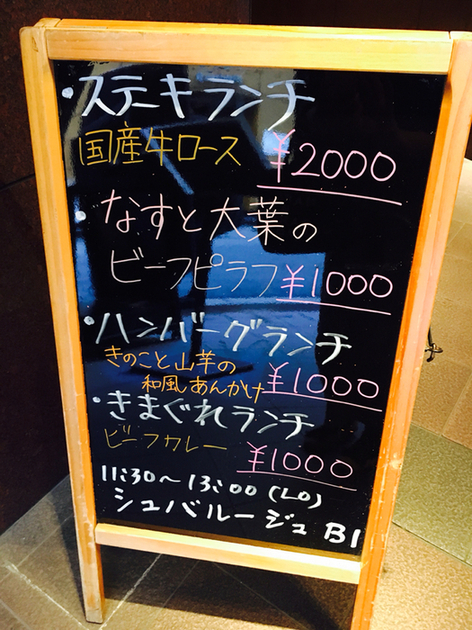 ・ステーキランチ
国産牛ロース ¥2000
・なすと大葉の
ビーフピラフ ¥1000
・ハンバーグランチ
きのこと山芋の
和風あんかけ ¥1000
・きまぐれランチ
ビーフカレー ¥1000
11:30〜13:00(LO)
シュバルージュ B1